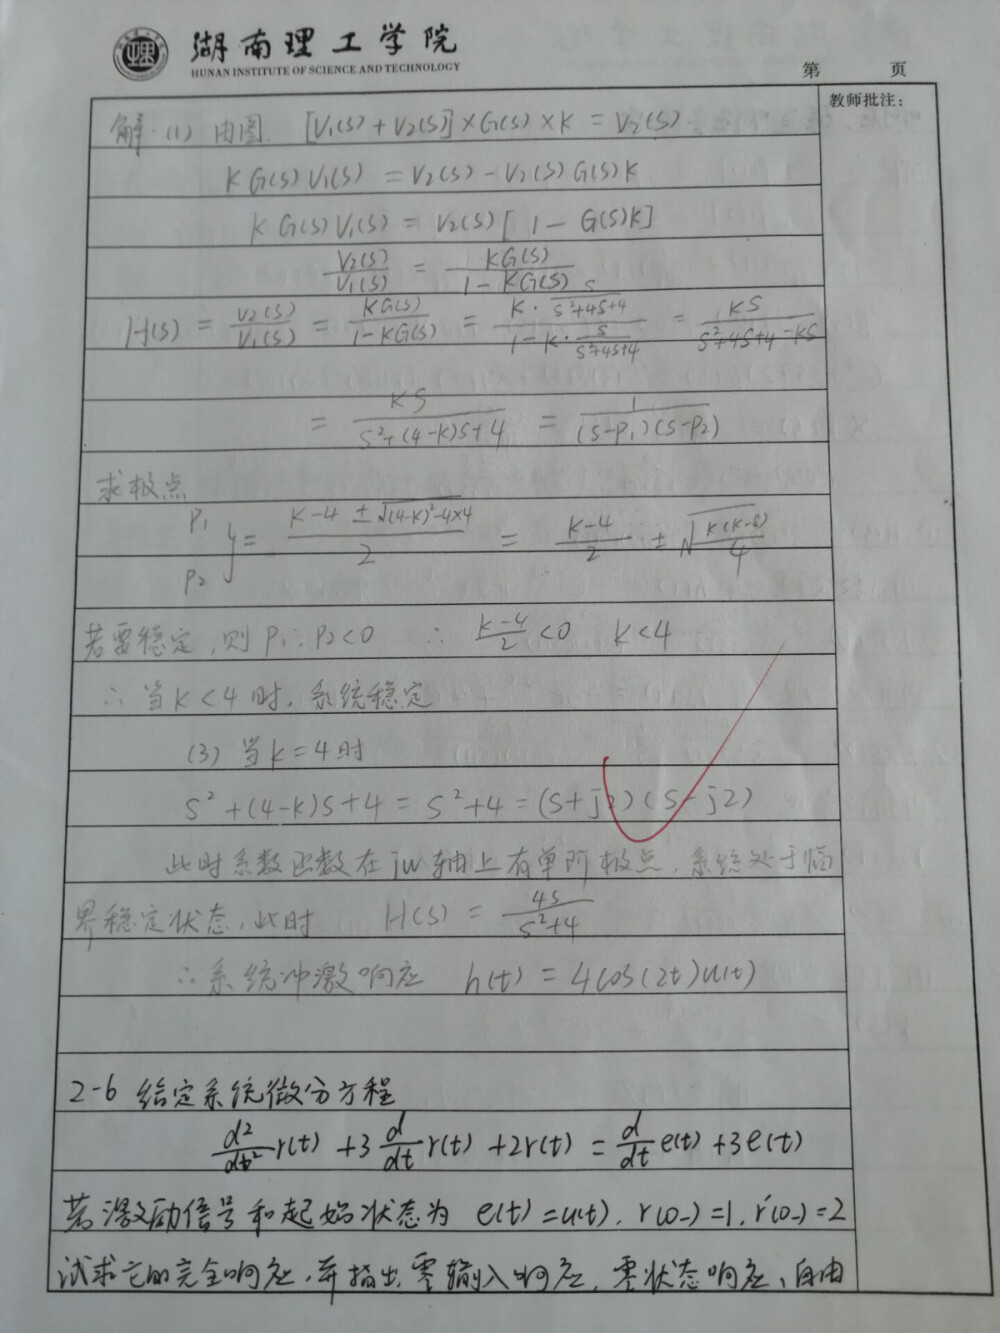 湖南理工学院
HUNAN INSTITUTE OF SCIENCE AND TECHNOLOGY
第 页
教师批注：
解.(1) 由图. [V₁(s) + V₂(s)] × G(s) × K = V₂(s)
K G(s) V₁(s) = V₂(s) - V₂(s) G(s) K
K G(s) V₁(s) = V₂(s) [ 1 - G(s)K]
V₂(s)/V₁(s) = KG(s)/(1 - KG(s))
H(s) = V₂(s)/V₁(s) = KG(s)/(1-KG(s)) = (K · s/(s²+4s+4))/(1-K · s/(s²+4s+4)) = KS/(s²+4s+4-KS)
= KS/(s²+(4-K)s+4) = 1/((s-P₁)(s-P₂))
求极点
P₁ P₂ } = (K-4 ± √((4-K)²-4×4))/2 = (K-4)/2 ± √(K(K-8)/4)
若要稳定，则 P₁, P₂ < 0 ∴ (K-4)/2 < 0 K < 4
∴ 当 K < 4 时，系统稳定
(3) 当 k = 4 时
s² + (4-k)s + 4 = s² + 4 = (s + j2)(s - j2)
此时系数函数在 jw 轴上有单阶极点，系统处于临
界稳定状态，此时 H(s) = 4s/(s²+4)
∴ 系统冲激响应 h(t) = 4cos(2t)u(t)
2-6 给定系统微分方程
d²/dt² r(t) + 3 d/dt r(t) + 2r(t) = d/dt e(t) + 3e(t)
若激励信号和起始状态为 e(t) = u(t), r(0-) = 1, r'(0-) = 2
试求它的完全响应，并指出零输入响应，零状态响应，自由